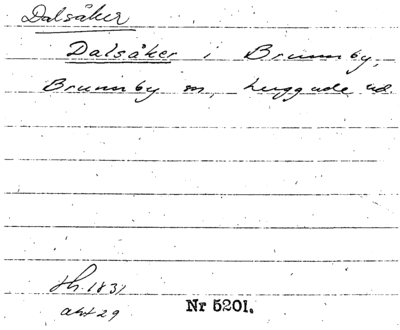 Dalsåker
Dalsåker i Brunnby.
Brunnby sn, Luggude hd.
Sh. 1831
akt 29
Nr 5201.